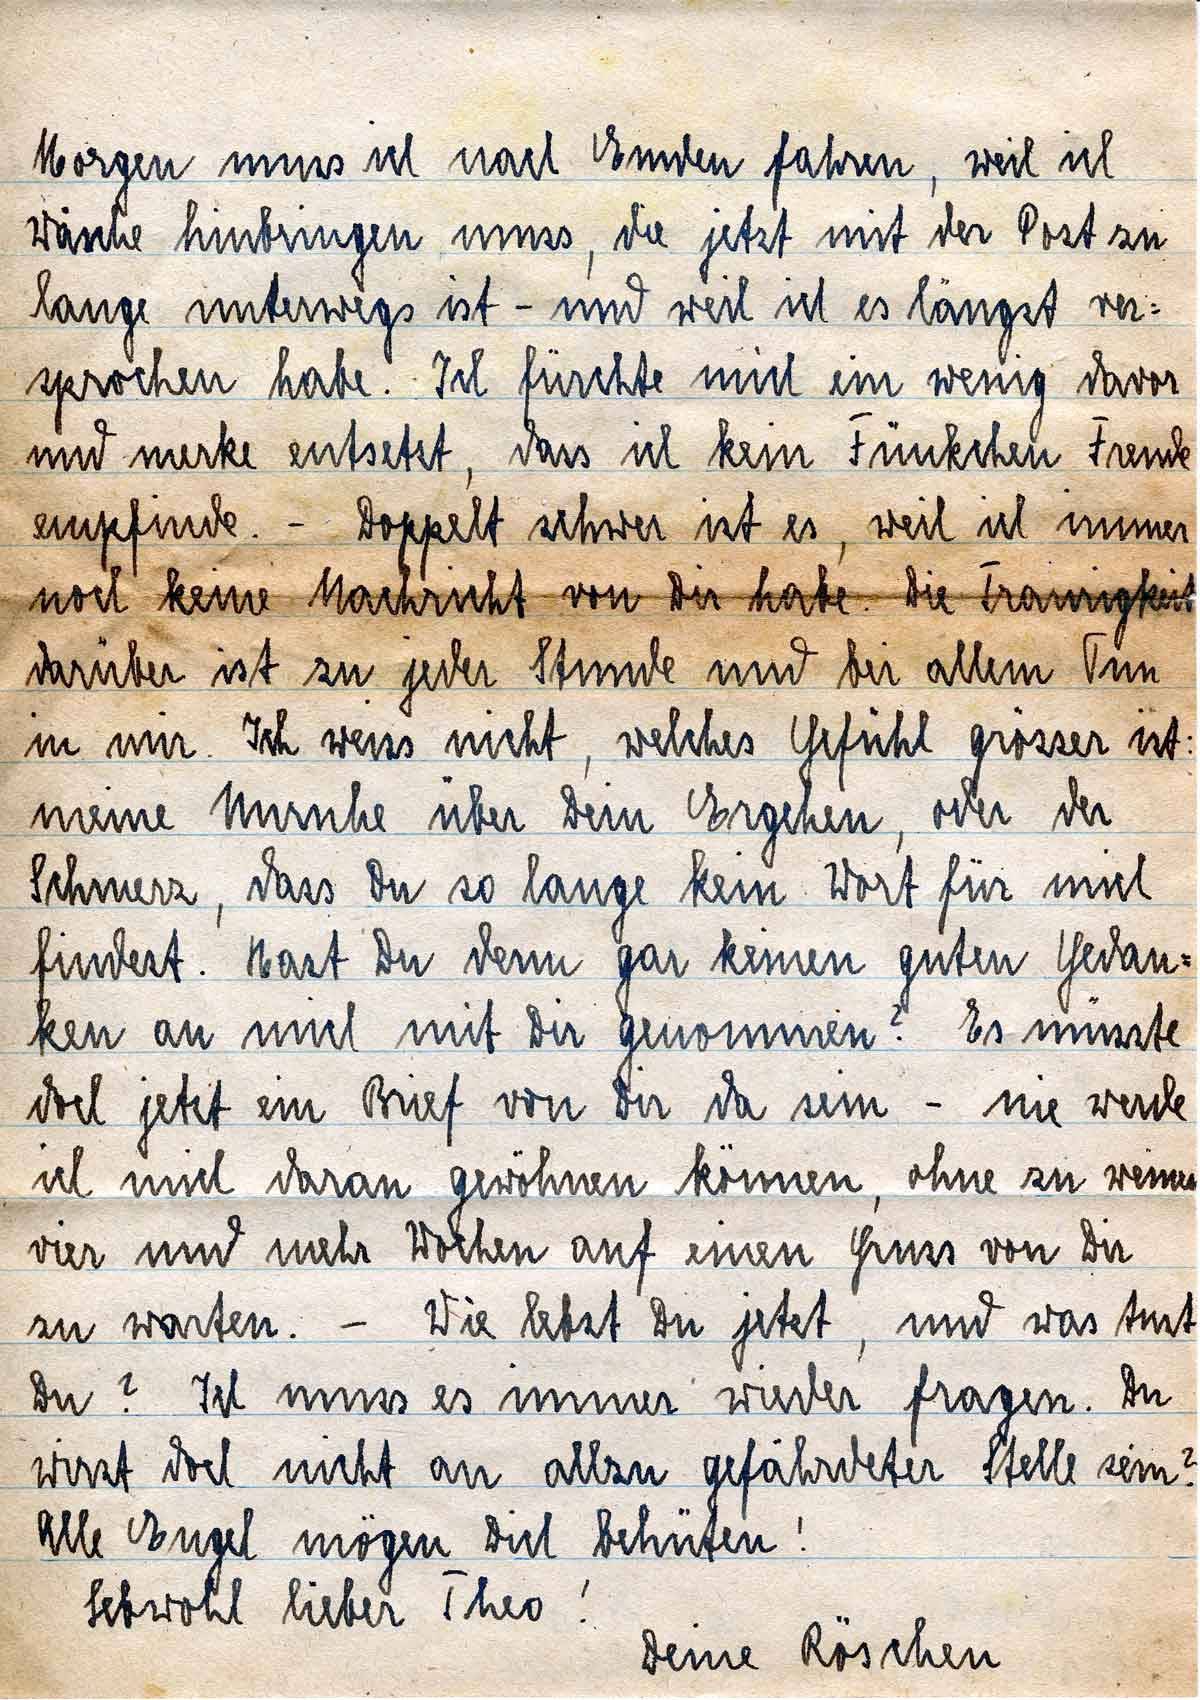 Morgen muss ich nach Emden fahren, weil ich
Wäsche hinbringen muss, die jetzt mit der Post zu
lange unterwegs ist - und weil ich es längst ver=
sprochen habe. Ich fürchte mich ein wenig davor
und merke entsetzt, dass ich kein Fünkchen Freude
empfinde. - Doppelt schwer ist es, weil ich immer
noch keine Nachricht von Dir habe. Die Traurigkeit
darüber ist zu jeder Stunde und bei allem Tun
in mir. Ich weiss nicht, welches Gefühl grösser ist:
meine Unruhe über Dein Ergehen, oder der
Schmerz, dass Du so lange kein Wort für mich
findest. Hast Du denn gar keinen guten Gedan=
ken an mich mit Dir genommen? Es müsste
doch jetzt ein Brief von Dir da sein - nie werde
ich mich daran gewöhnen können, ohne zu weinen
vier und mehr Wochen auf einen Gruss von Dir
zu warten. - Wie lebst Du jetzt, und was tust
Du? Ich muss es immer wieder fragen. Du
wirst doch nicht an allzu gefährdeter Stelle sein?
Alle Engel mögen Dich behüten!
Lebwohl lieber Theo!
Deine Röschen